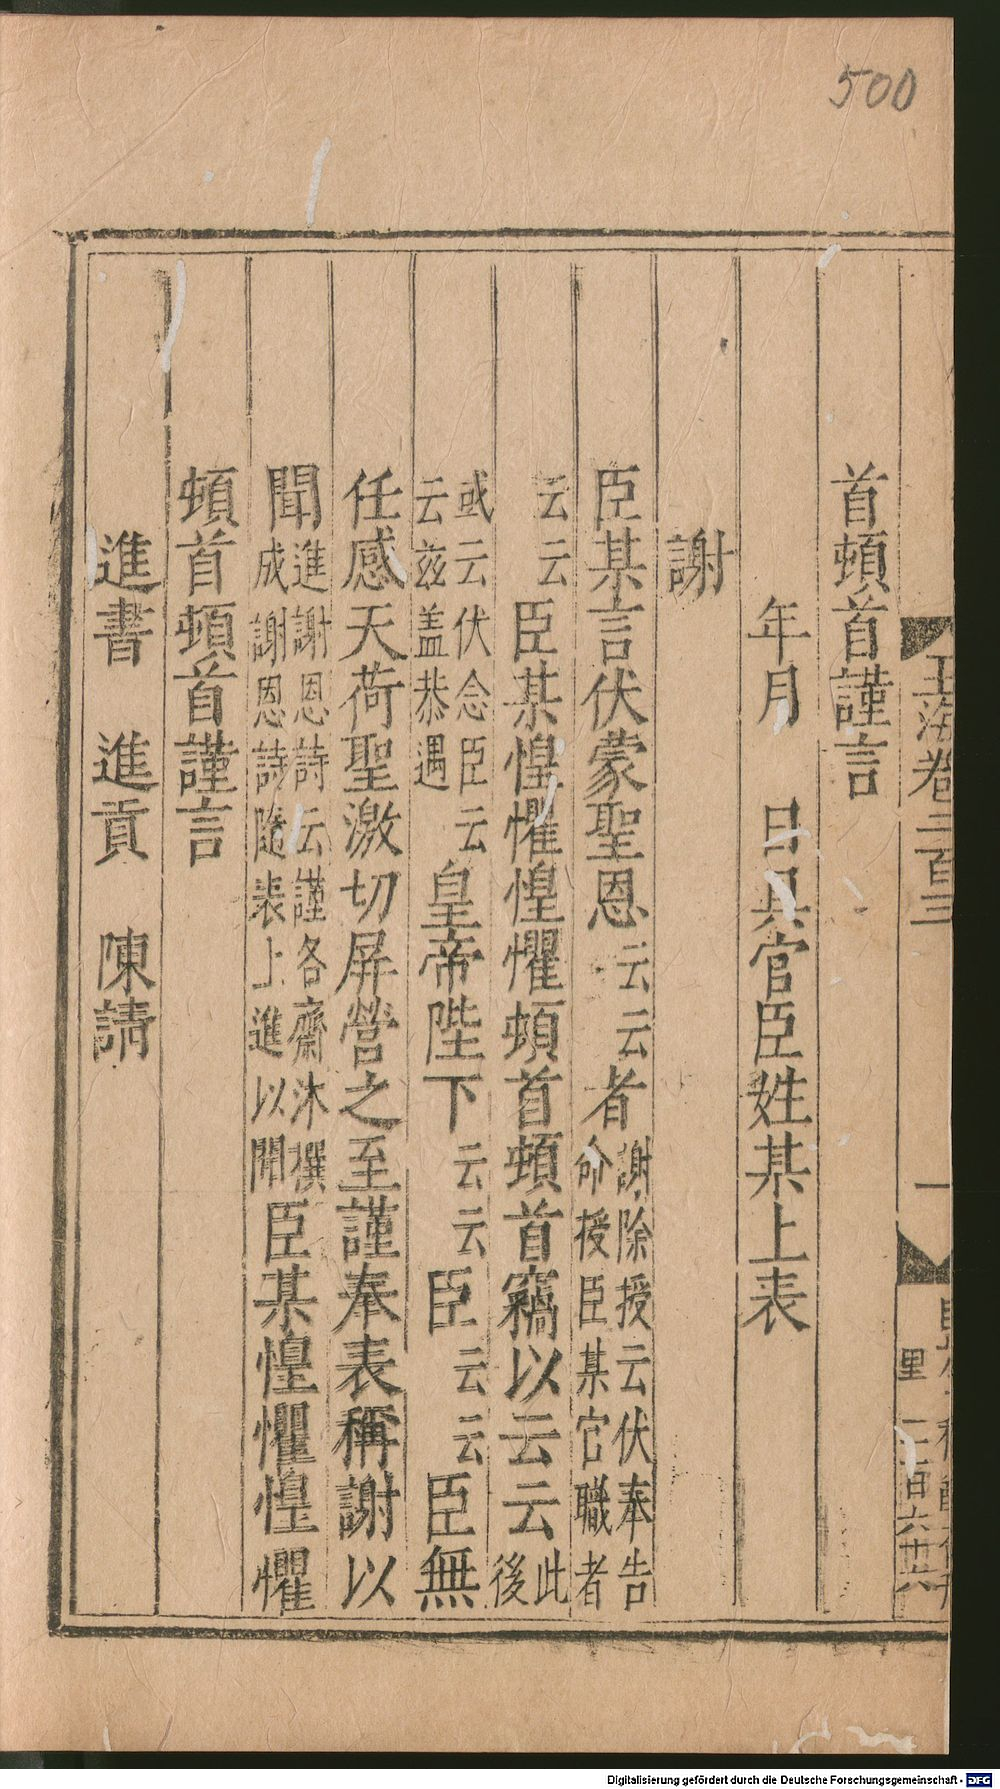 500
玉海卷二百三
一
里
首頓首謹言
年月　日具官臣姓某上表
謝
臣某言伏蒙聖恩云云者謝除授云伏奉告命授臣某官職者
云云臣某惶懼惶懼頓首頓首竊以云云此後
或云伏念臣云云茲盖恭遇皇帝陛下云云臣云云臣無
任感天荷聖激切屏營之至謹奉表稱謝以
聞進謝恩詩云謹各齋沐撰成謝恩詩隨表上進以聞臣某惶懼惶懼
頓首頓首謹言
進書　進貢　陳請
Digitalisierung gefördert durch die Deutsche Forschungsgemeinschaft - DFG